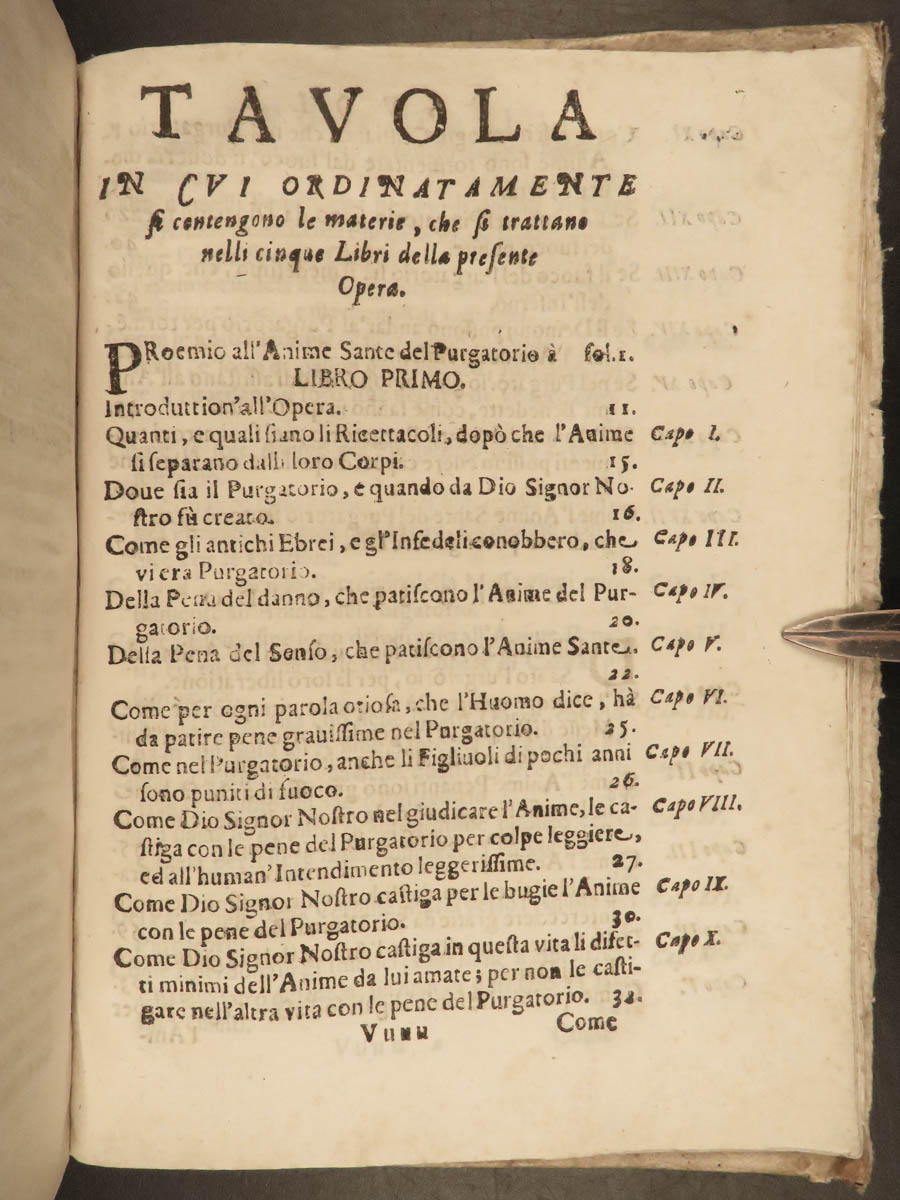 TAVOLA
IN CVI ORDINATAMENTE
ſi contengono le materie, che ſi trattano
nelli cinque Libri della preſente
Opera.
PRoemio all'Anime Sante del Purgatorio à fol.1.
LIBRO PRIMO.
Introduttion'all'Opera. 11.
Quanti, e quali ſiano li Ricettacoli, dopò che l'Anime Capo I.
ſi ſeparano dalli loro Corpi. 15.
Doue ſia il Purgatorio, e quando da Dio Signor No- Capo II.
ſtro fù creato. 16.
Come gli antichi Ebrei, e gl'Infedeli conobbero, che Capo III.
vi era Purgatorio. 18.
Della Pena del danno, che patiſcono l'Anime del Pur- Capo IV.
gatorio. 20.
Della Pena del Senſo, che patiſcono l'Anime Sante. Capo V.
22.
Come per ogni parola otioſa, che l'Huomo dice, hà Capo VI.
da patire pene grauiſſime nel Purgatorio. 25.
Come nel Purgatorio, anche li Figliuoli di pochi anni Capo VII.
ſono puniti di fuoco. 26.
Come Dio Signor Noſtro nel giudicare l'Anime, le ca- Capo VIII.
ſtiga con le pene del Purgatorio per colpe leggiere,
ed all'human'Intendimento leggeriſſime. 27.
Come Dio Signor Noſtro caſtiga per le bugie l'Anime Capo IX.
con le pene del Purgatorio. 30.
Come Dio Signor Noſtro caſtiga in queſta vita li difet- Capo X.
ti minimi dell'Anime da lui amate; per non le caſti-
gare nell'altra vita con le pene del Purgatorio. 32.
Vuuu Come